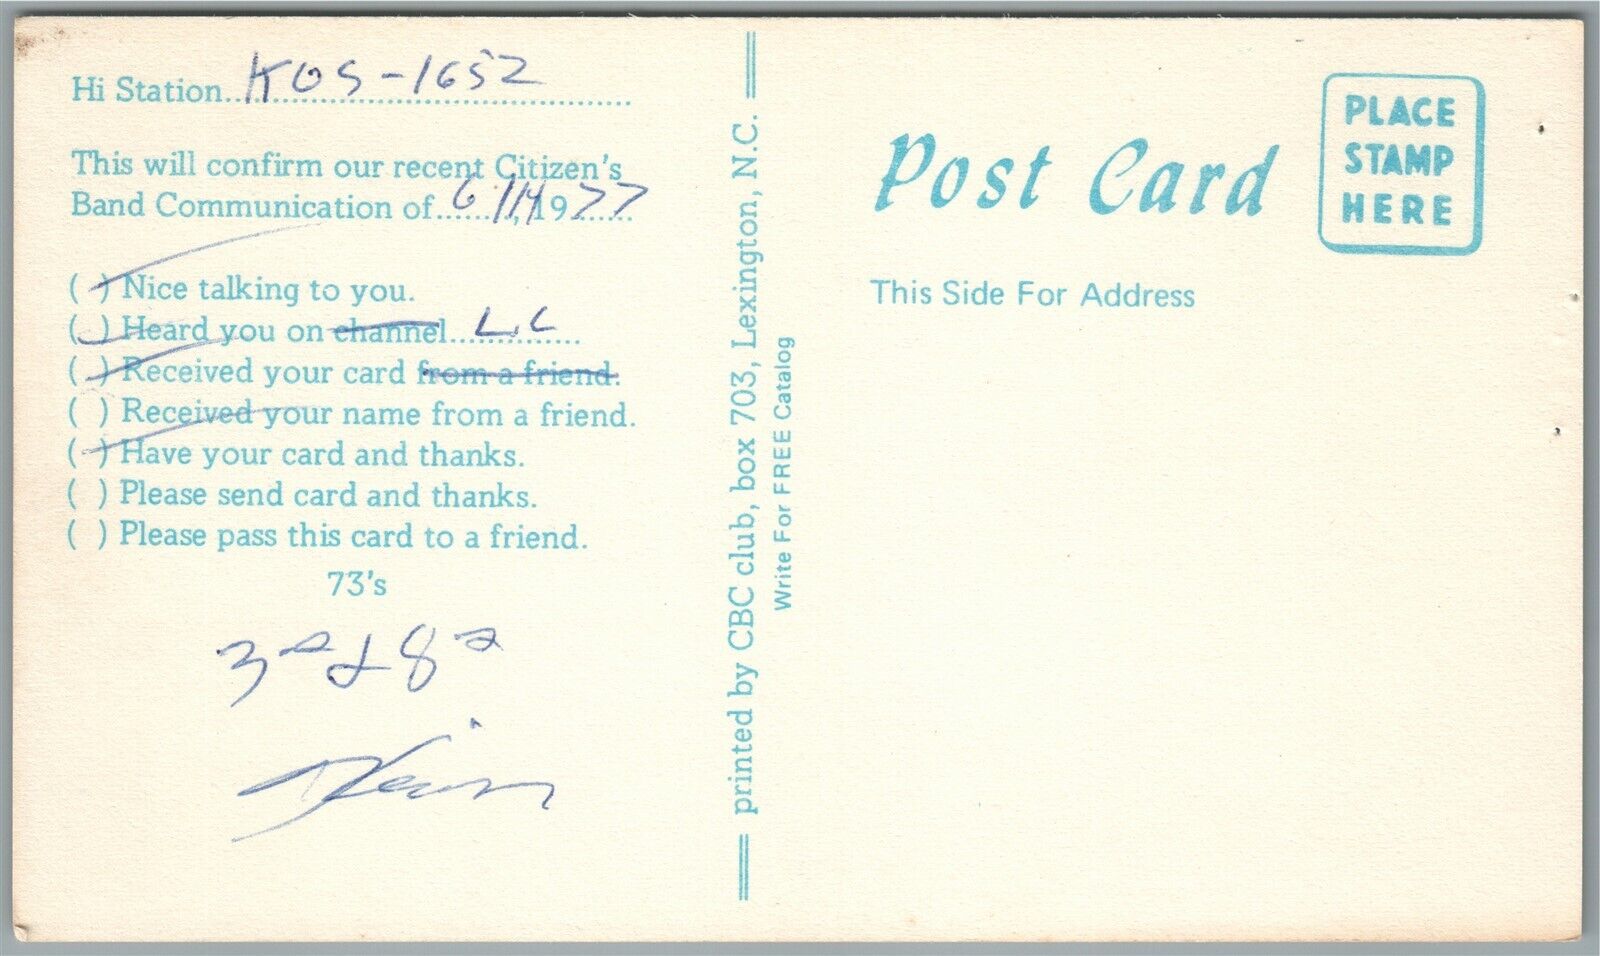 Hi Station.......KOS-1652.......
This will confirm our recent Citizen's
Band Communication of....6/14, 1977....
( ) Nice talking to you.
( ) Heard you on channel....L.C....
( ) Received your card from a friend.
( ) Received your name from a friend.
( ) Have your card and thanks.
( ) Please send card and thanks.
( ) Please pass this card to a friend.
73's
printed by CBC club, box 703, Lexington, N.C.
Write For FREE Catalog
Post Card
This Side For Address
PLACE
STAMP
HERE